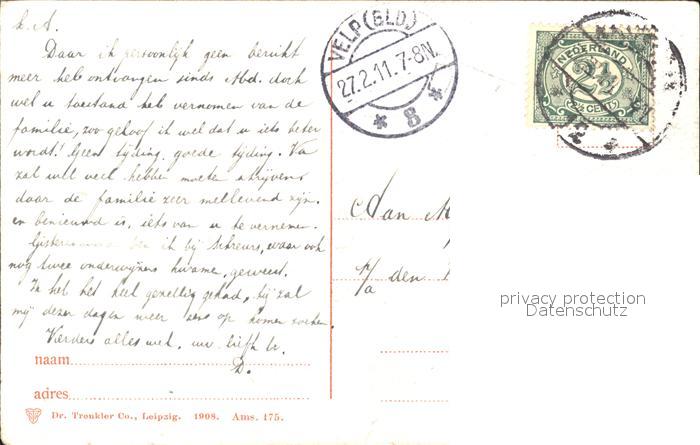 L. A.
Daar ik persoonlijk geen bericht
meer heb ontvangen sinds Abd. doch
wel u toestand heb vernomen van de
familie, zoo geloof ik wel dat u iets beter
wordt! Geen tijding, goede tijding. Va
zal wel veel hebbe moete schrijven
daar de familie zeer mellevend zijn.
en benieuwd is, iets van u te vernemen.
ben ik bij Scheurs, waar ook
nog twee onderwijzers kwame, geweest.
Ik heb het heel gezellig gehad, hij zal
mij dezer dagen weer eens op komen zoeken.
Verders alles wel. uw liefh br.
D.
naam
adres
Dr. Trenkler Co., Leipzig. 1908. Ams. 175.
VELP (GLD.)
27.2.11.7-8N.
* 8 *
NEDERLAND
2½
2½ CENT
Aan M
p/a den
privacy protection
Datenschutz